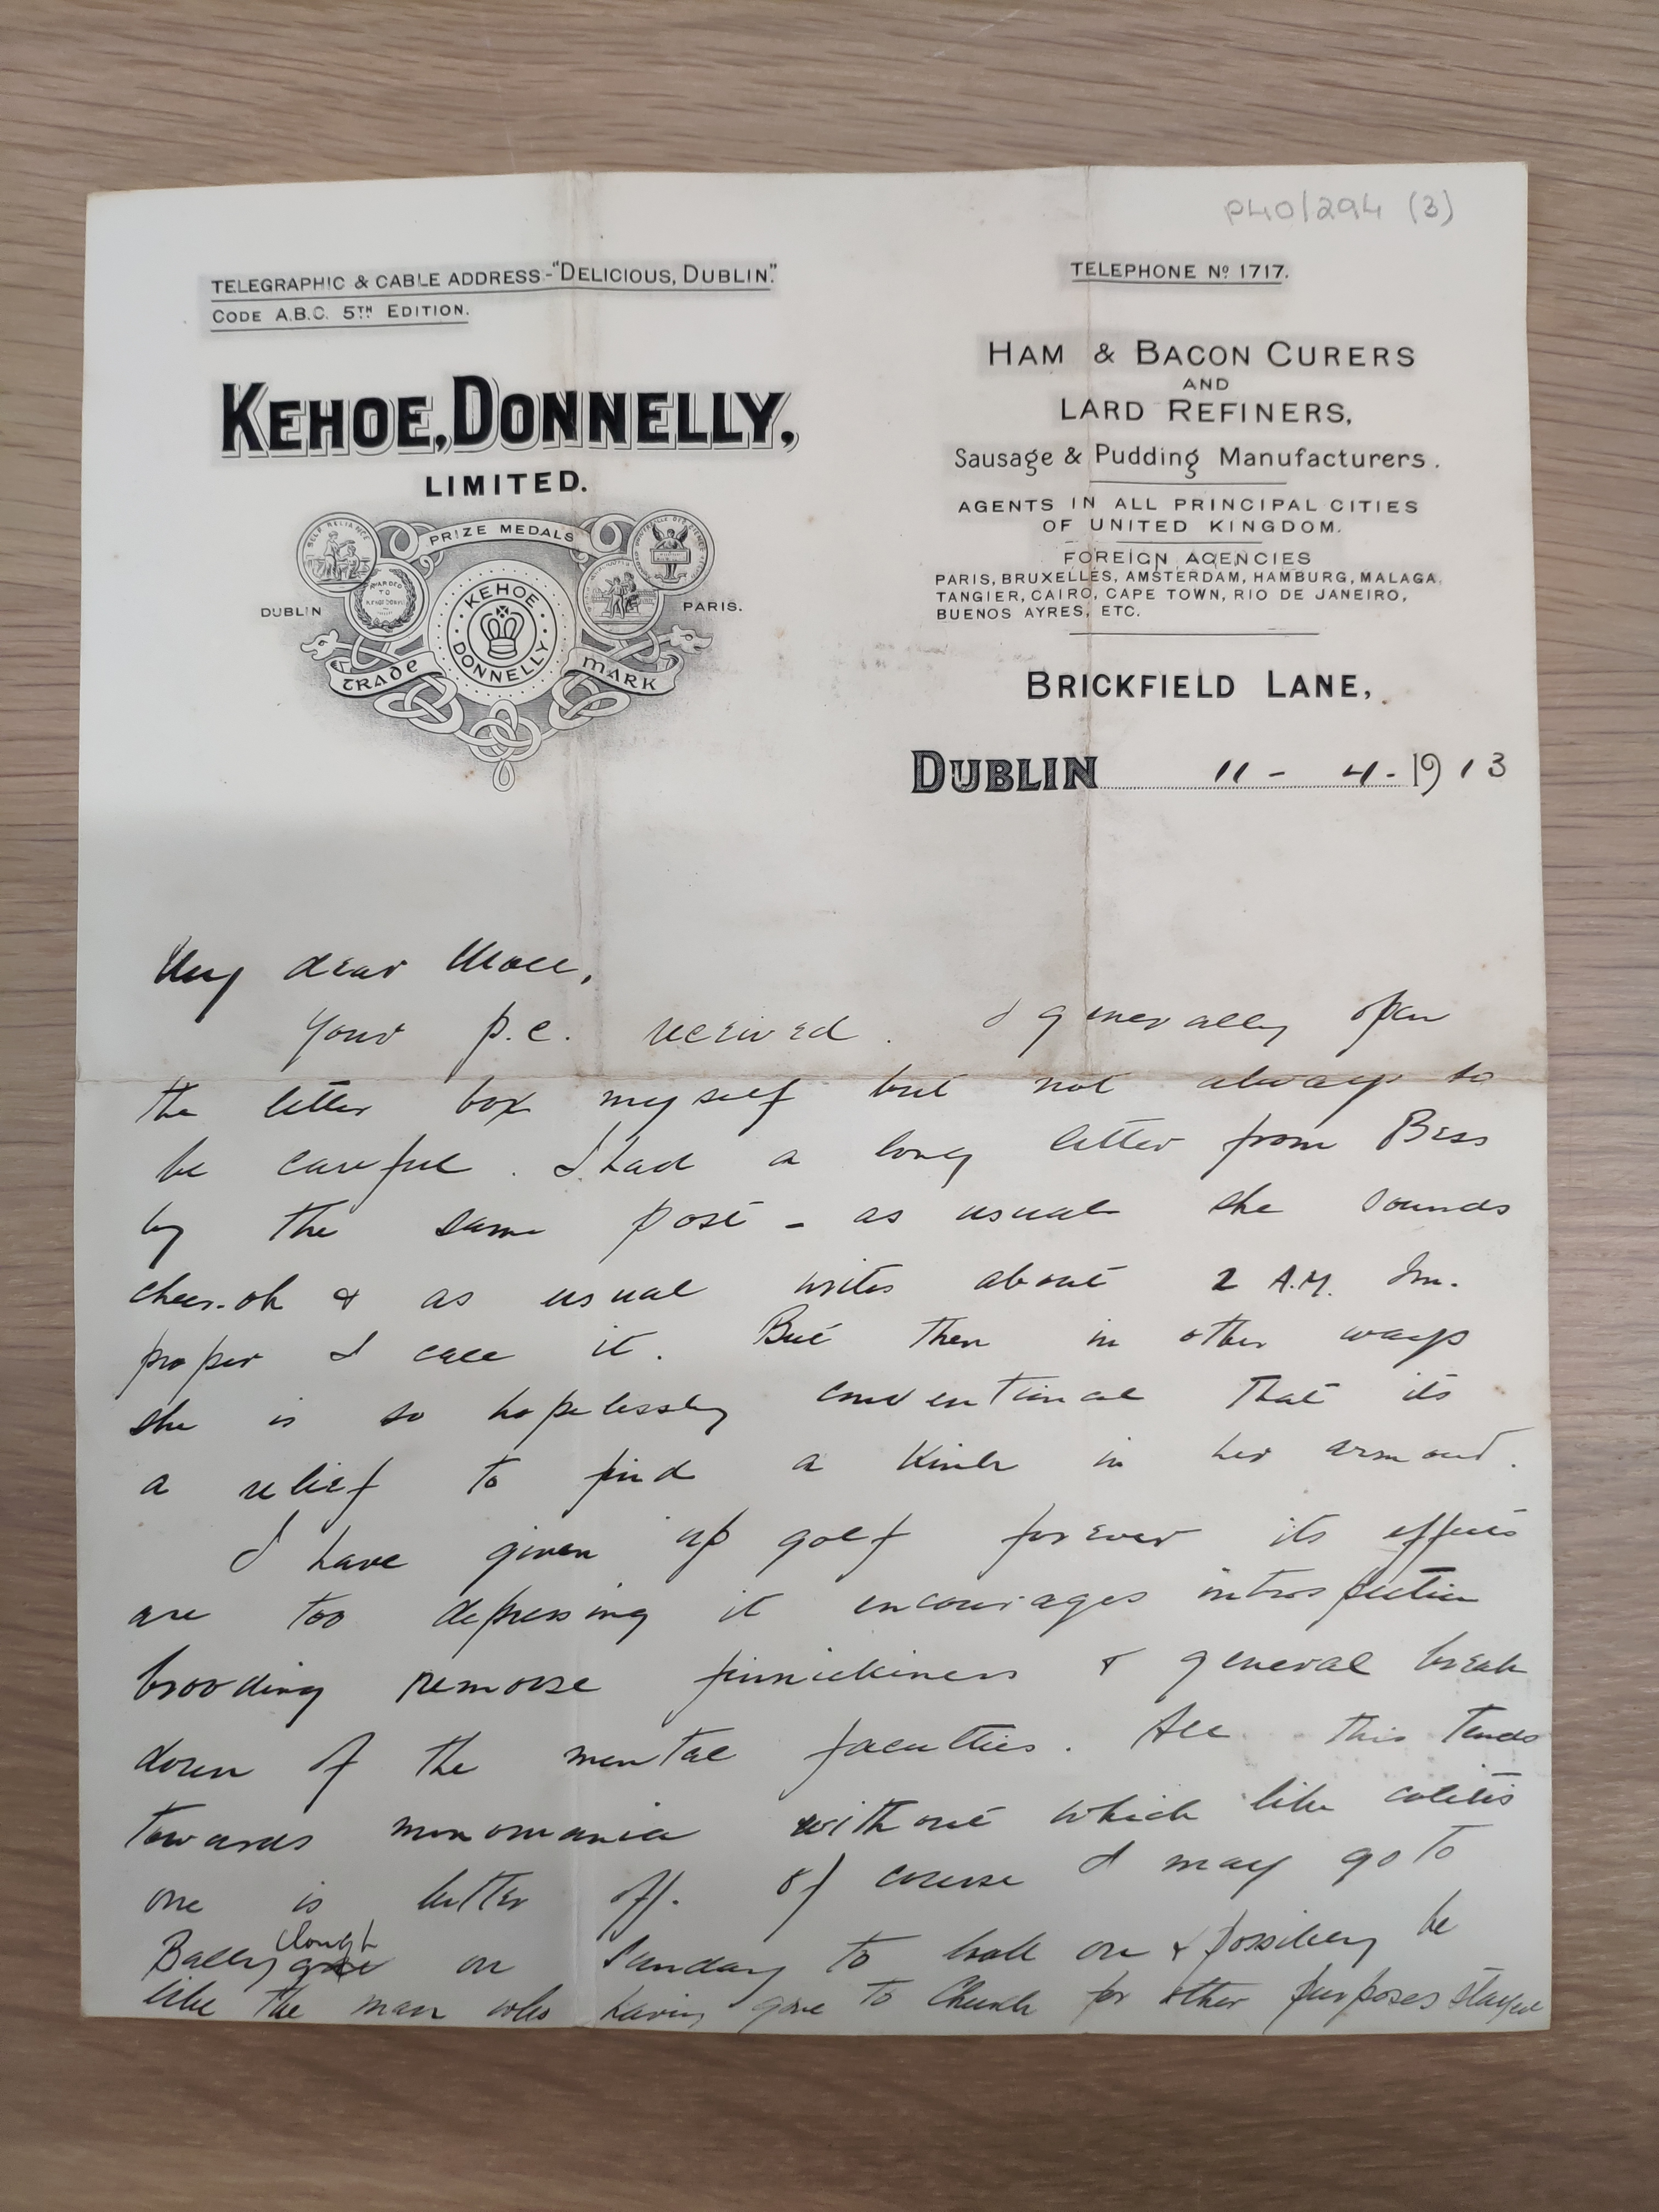 P40/294 (3)
TELEGRAPHIC & CABLE ADDRESS-"DELICIOUS, DUBLIN."
CODE A.B.C. 5TH EDITION.
TELEPHONE No 1717.
KEHOE, DONNELLY,
LIMITED.
PRIZE MEDALS
SELF RELIANCE
AWARDED TO
DUBLIN
PARIS.
KEHOE DONNELLY
TRADE MARK
HAM & BACON CURERS
AND
LARD REFINERS,
Sausage & Pudding Manufacturers.
AGENTS IN ALL PRINCIPAL CITIES
OF UNITED KINGDOM.
FOREIGN AGENCIES
PARIS, BRUXELLES, AMSTERDAM, HAMBURG, MALAGA,
TANGIER, CAIRO, CAPE TOWN, RIO DE JANEIRO,
BUENOS AYRES, ETC.
BRICKFIELD LANE,
DUBLIN 11 - 4 - 1913
My dear Moll,
Your p.c. received. I generally open
the letter box myself but not always so
be careful. I had a long letter from Bess
by the same post - as usual she sounds
cheer-oh & as usual writes about 2 A.M. Im-
proper I call it. But then in other ways
she is so hopelessly conventional that its
a relief to find a kink in her armour.
I have given up golf forever its effects
are too depressing it encourages introspection
brooding remorse finnickiness & general break
down of the mental faculties. All this tends
towards monomania without which like colitis
one is better off. Of course I may go to
Ballyclough on Sunday to look on & possibly be
like the man who having gone to Church for other purposes stayed